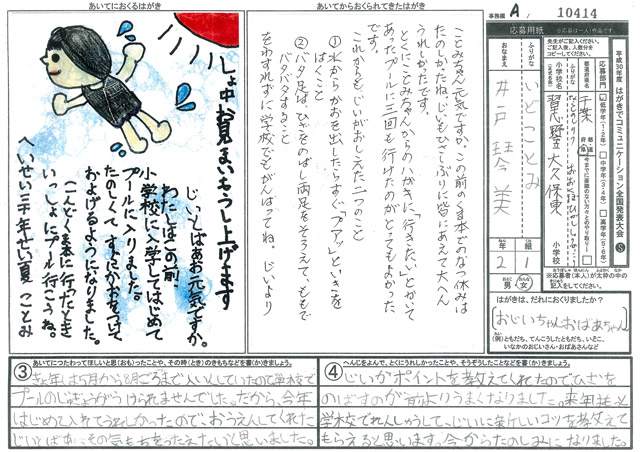 事務局 A / 10414
あいてにおくるはがき
あいてからおくられてきたはがき
応募用紙
しょ中お見まいもうし上げます
じいじ ばあばお元気ですか。
わたしはこの前、
小学校に入学してはじめて
プールに入りました。
たのしくて、すぐにかおをつけて
およげるようになりました。
こんどくま本に行ったとき
いっしょにプール行こうね。
へいせい三十年せい夏 ことみ
ことみちゃん元気ですか。この前のくま本でのなつ休みは
たのしかったね。じいもひさしぶりに皆にあえて大へん
うれしかったです。
とくにことみちゃんからのハガキに「行きたい」とかいて
あったプールに三回も行けたのがとてもよかった
です。
これからも、じいがおしえた二つのこと
①水からかおを出したらすぐ、「プアッ」といきを
はくこと
②バタ足は、ひざをのばし両足をそろえて、ももで
バタバタすること
をわすれずに学校でもがんばってね。じいより
平成30年度 はがきでコミュニケーション全国発表大会
応募部門
低学年(1・2年)
中学年(3・4年)
高学年(5・6年)
都道府県名
千葉
小学校名
習志野市立大久保東
小学校
ふりがな
いど ことみ
おなまえ
井戸 琴美
年 2
組 1
男 女
はがきは、だれにおくりましたか？
おじいちゃんおばあちゃん
(例)ともだち、てんこうしたともだち、いとこ、
いなかのおじいさん・おばあさんなど
③ あいてにつたわってほしいと思(おも)ったことや、その時(とき)のきもちなどを書(か)きましょう。
きょ年は5月から8月ごろまで入いんしていたので学校で
プールのじゅぎょうがうけられませんでした。だから、今年
はじめて入れてうれしかったので、おうえんしてくれた
じいじとばあばにその気もちをつたえたいと思いました。
④ へんじをよんで、とくにうれしかったことや、そうぞうしたことなどを書(か)きましょう。
じいじがポイントを教えてくれたのでひざを
のばすのが前よりうまくなりました。来年も
学校でれんしゅうして、じいじに新しいコツを教えて
もらえると思います。今からたのしみになりました。